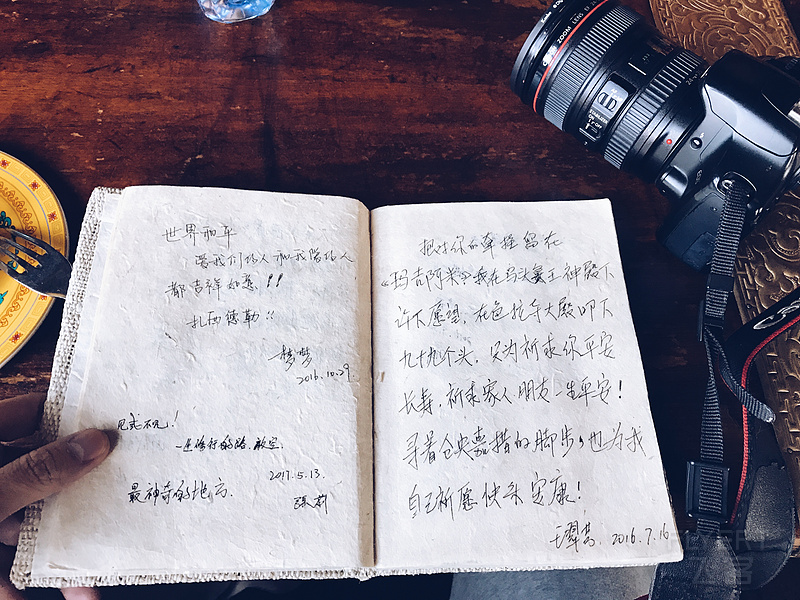 世界和平
愿我们的人和我陪的人
都吉祥如意!!
扎西德勒!!
梦梦
2016.10.29.
见或不见!
一连修行的路. 放空.
2017.5.13.
最神奇的地方.
张莉
把对你的牵挂留在
《玛吉阿米》我在马头冥王神殿下
许下愿望, 在色拉寺大殿叩下
九十九个头, 只为祈求你平安
长寿, 祈求家人朋友一生平安!
寻着仓央嘉措的脚步, 也为我
自己祈愿快乐安康!
2016.7.16